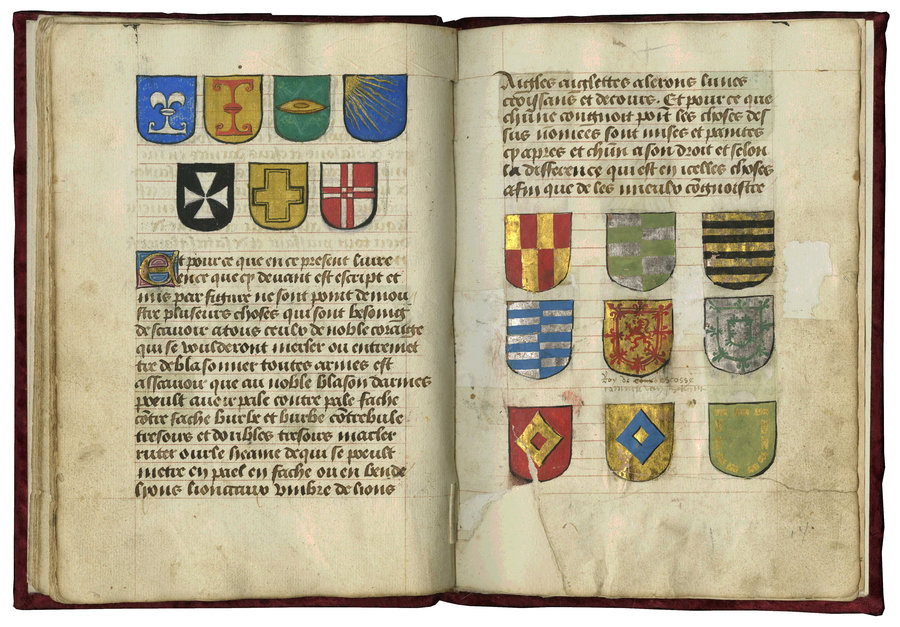 Et pour ce que en ce present livre
ence que cy devant est escript et
mis par figure ne sont point demou
stre plusieurs choses qui sont besoing
de scavoir a tous ceulx de noble coraige
qui se vouldront mesler ou entremet
tre de blasonner toutes armes est
assavoir que au noble blason darmes
poeult avoir pale contre pale fache
côtre fache burle et burbe côtrebule
tresours et doubles tresours
ourle de qui se poeult
metre en pael en fache ou en bende
lyons lionceaux umbre de lions
Aigles aiglettes alerons lunes
croissans et decours. Et pour ce que
chûn congnoit point les choses des
sus nomees sont mises et paintes
cy apres et chûn a son droit et selon
la difference qui est en icelles choses
afin que de les mieulx côgnoistre